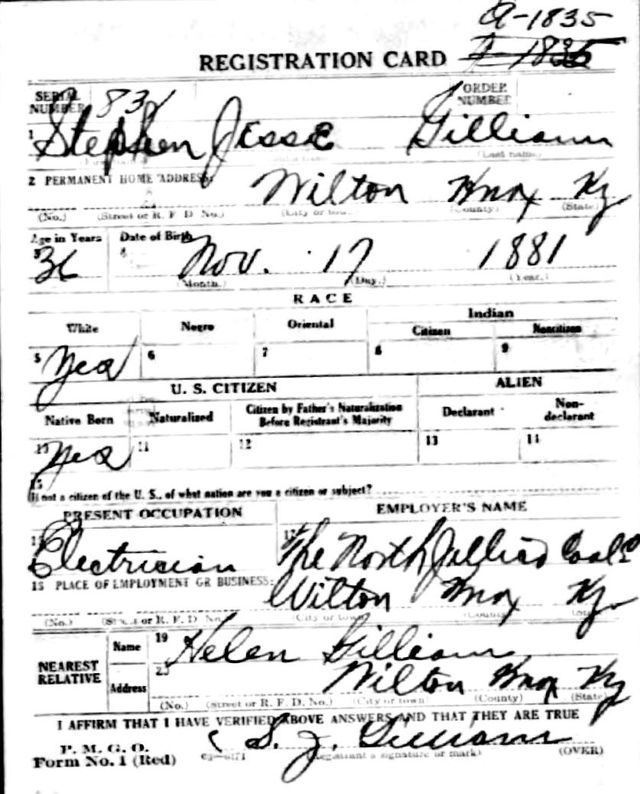 A-1835
REGISTRATION CARD
SERIAL NUMBER 831 ORDER NUMBER
1 Stephen Jesse Gilliam
(Last name)
2 PERMANENT HOME ADDRESS:
Wilton Knox Ky
(No.) (Street or R. F. D. No.) (City or town) (County) (State)
Age in Years Date of Birth
36 Nov. 17 1881
(Month.) (Day.) (Year.)
RACE
White Negro Oriental Indian
Citizen Noncitizen
5 Yes 6 7 8 9
U. S. CITIZEN ALIEN
Native Born Naturalized Citizen by Father's Naturalization Before Registrant's Majority Declarant Non-declarant
10 Yes 11 12 13 14
15
If not a citizen of the U. S., of what nation are you a citizen or subject?
PRESENT OCCUPATION EMPLOYER'S NAME
Electrician The North Jellico Coal Co
18 PLACE OF EMPLOYMENT OR BUSINESS:
Wilton Knox Ky
(No.) (Street or R. F. D. No.) (City or town) (County) (State)
NEAREST RELATIVE
Name 19 Helen Gilliam
Address 20 Wilton Knox Ky
(No.) (Street or R. F. D. No.) (City or town) (County) (State)
I AFFIRM THAT I HAVE VERIFIED ABOVE ANSWERS AND THAT THEY ARE TRUE
P. M. G. O.
Form No. 1 (Red) S. J. Gilliam
(Registrant's signature or mark) (OVER)